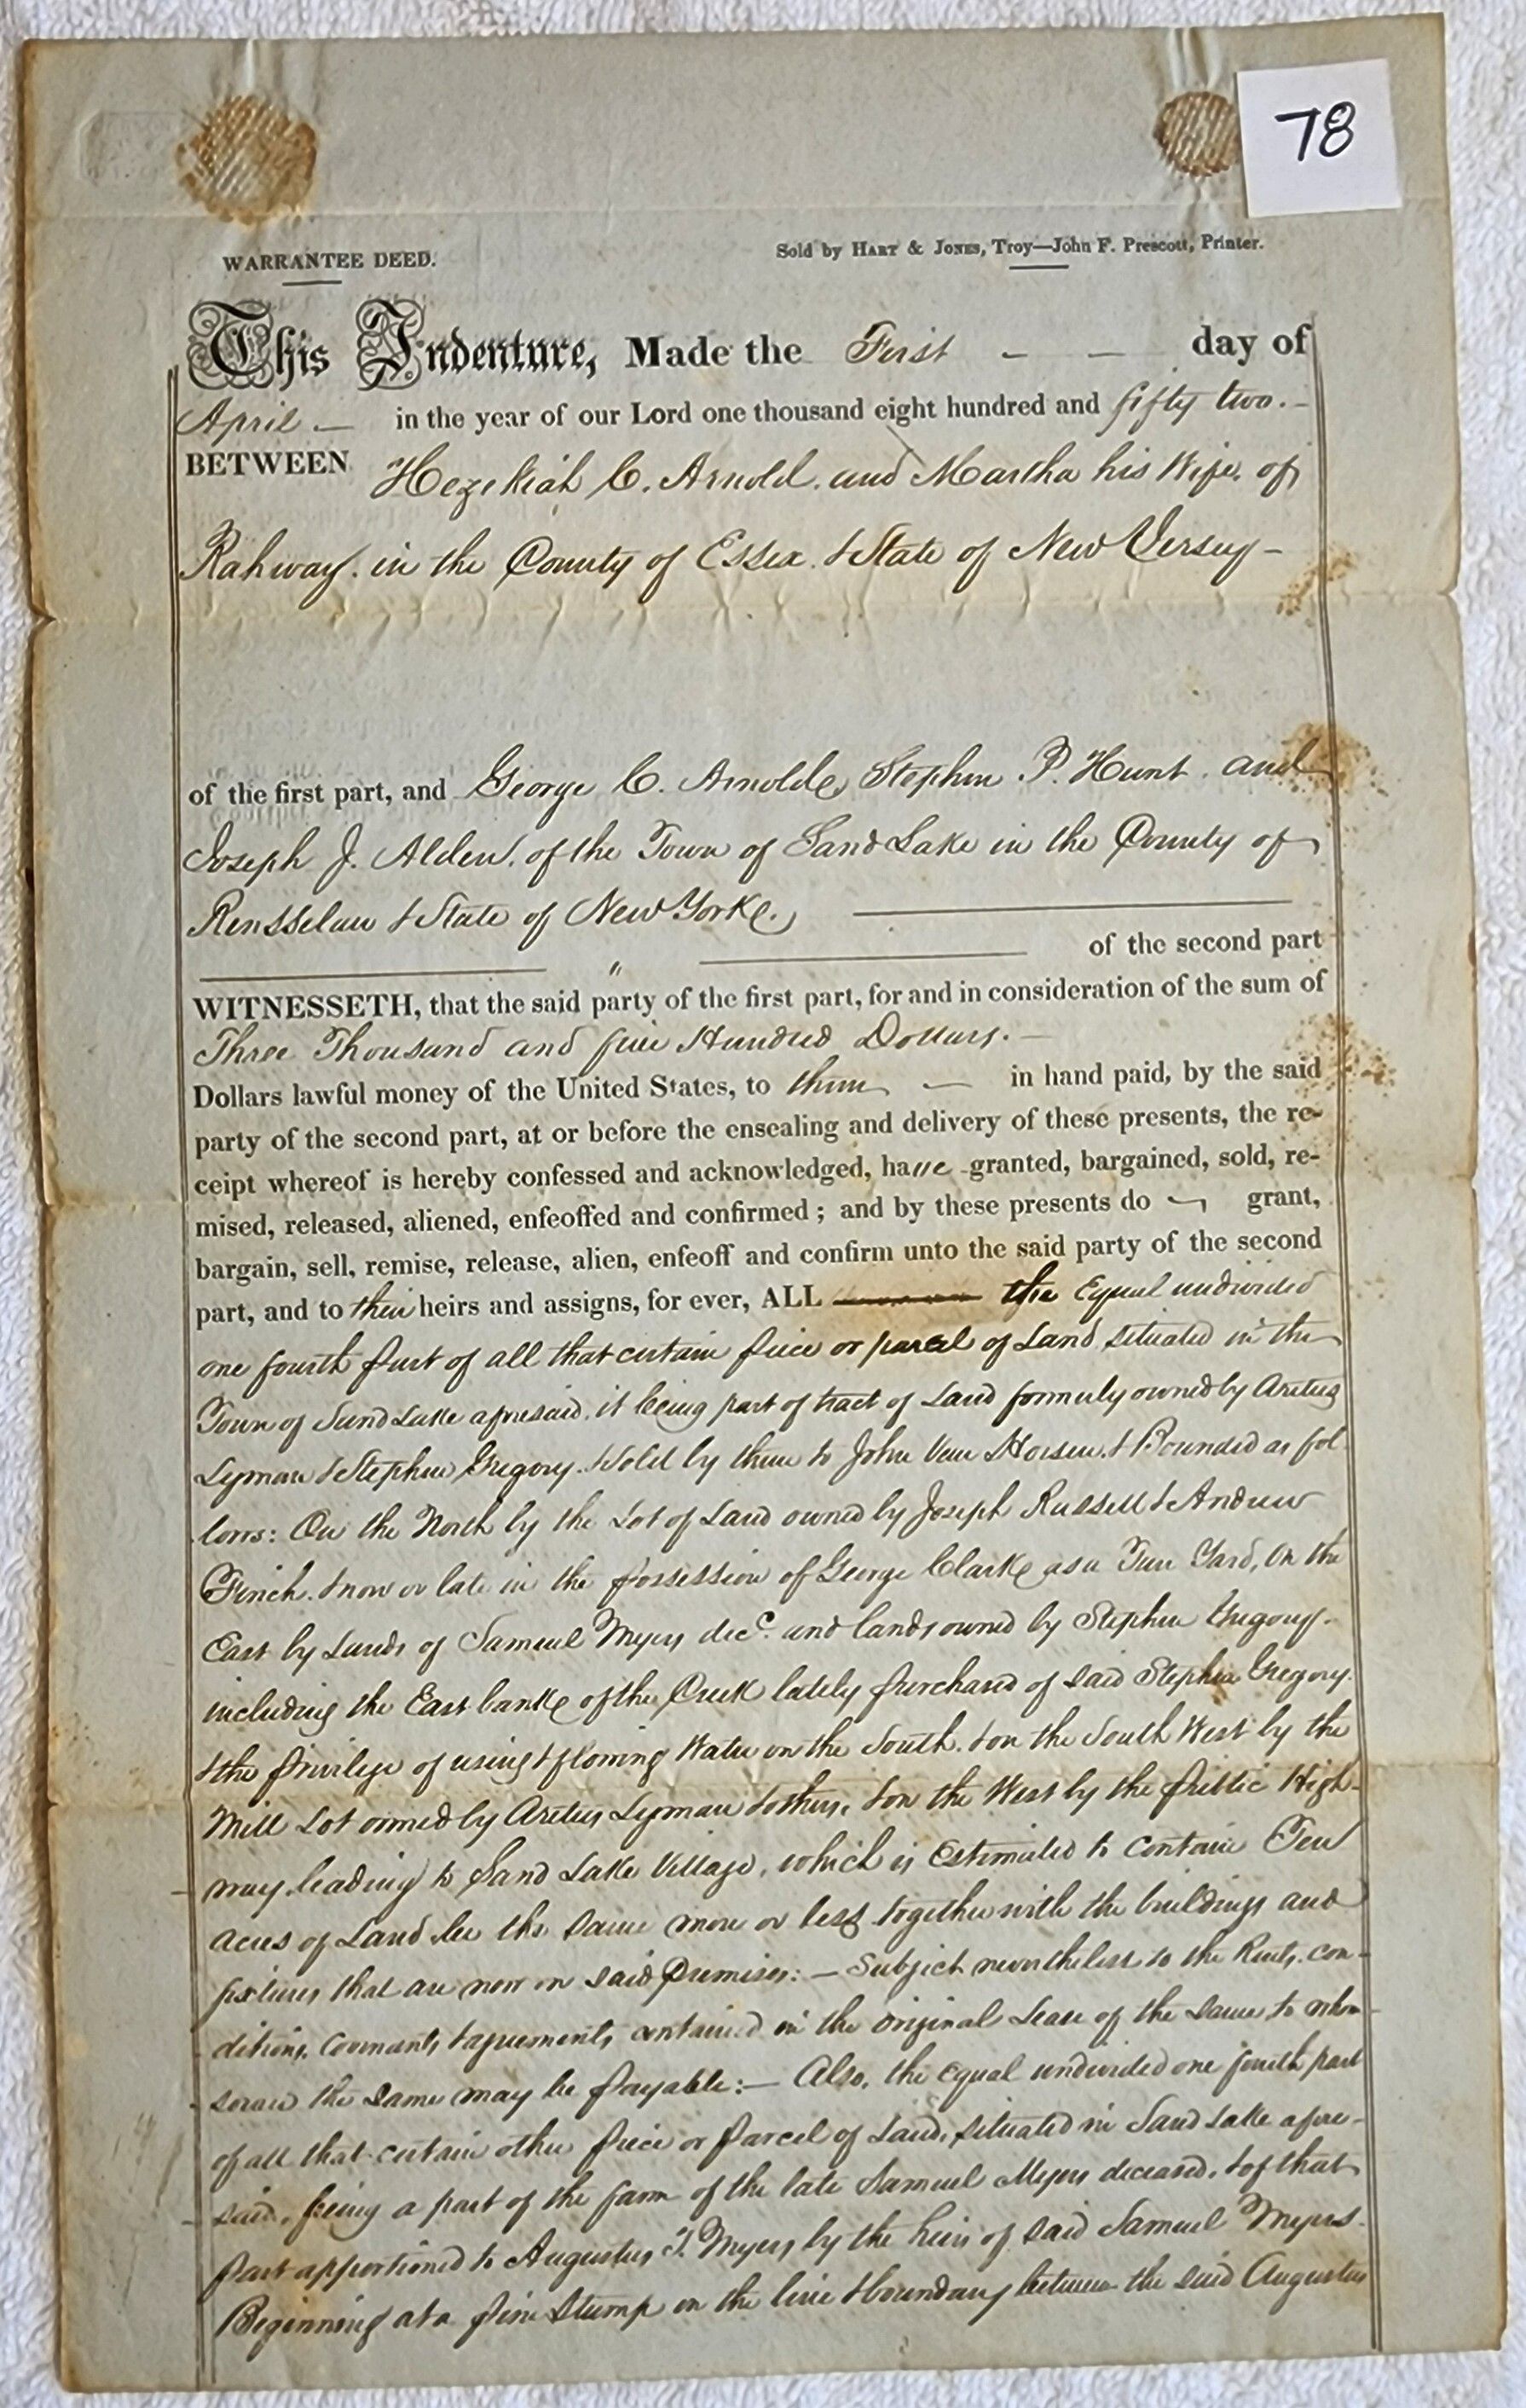 78
WARRANTEE DEED.
Sold by HART & JONES, Troy—John F. Prescott, Printer.
This Indenture, Made the First – – day of
April – in the year of our Lord one thousand eight hundred and fifty two. –
BETWEEN Hezekiah C. Arnold. and Martha his Wife. of
Rahway. in the County of Essex. & State of New Jersey –
of the first part, and George C. Arnold, Stephen P. Hunt. and
Joseph J. Alden. of the Town of Sand Lake in the County of
Rensselaer & State of New York.
" of the second part
WITNESSETH, that the said party of the first part, for and in consideration of the sum of
Three Thousand and five Hundred Dollars. –
Dollars lawful money of the United States, to them – in hand paid, by the said
party of the second part, at or before the ensealing and delivery of these presents, the re-
ceipt whereof is hereby confessed and acknowledged, have granted, bargained, sold, re-
mised, released, aliened, enfeoffed and confirmed; and by these presents do – grant,
bargain, sell, remise, release, alien, enfeoff and confirm unto the said party of the second
part, and to their heirs and assigns, for ever, ALL the Equal undivided
one fourth part of all that certain piece or parcel of Land situated in the
Town of Sand Lake aforesaid. it being part of tract of Land formerly owned by Aretus
Lyman & Stephen Gregory. & sold by them to John Van Hoesen. & Bounded as fol-
lows: On the North by the Lot of Land owned by Joseph Russell & Andrew
Finch. & now or late in the possession of George Clark as a Tan Yard, On the
East by Lands of Samuel Myers decd. and lands owned by Stephen Gregory.
including the East bank of the Creek lately purchased of said Stephen Gregory.
& the privilege of using & flowing Water on the South. & on the South West by the
Mill Lot owned by Aretus Lyman & others. & on the West by the public High-
way leading to Sand Lake Village, which is Estimated to contain Ten
acres of Land be the same more or less together with the buildings and
fixtures that are now on said Premises: – Subject nevertheless to the Rents. con-
ditions. Covenants & agreements contained in the original Lease of the same to whom
soever the same may be payable: – Also, the equal undivided one fourth part
of all that certain other piece or parcel of Land, situated in Sand Lake afore-
said, being a part of the farm of the late Samuel Myers deceased. & of that
part apportioned to Augustus T. Myers by the heirs of said Samuel Myers.
Beginning at a pine Stump on the line & boundary between the said Augustus